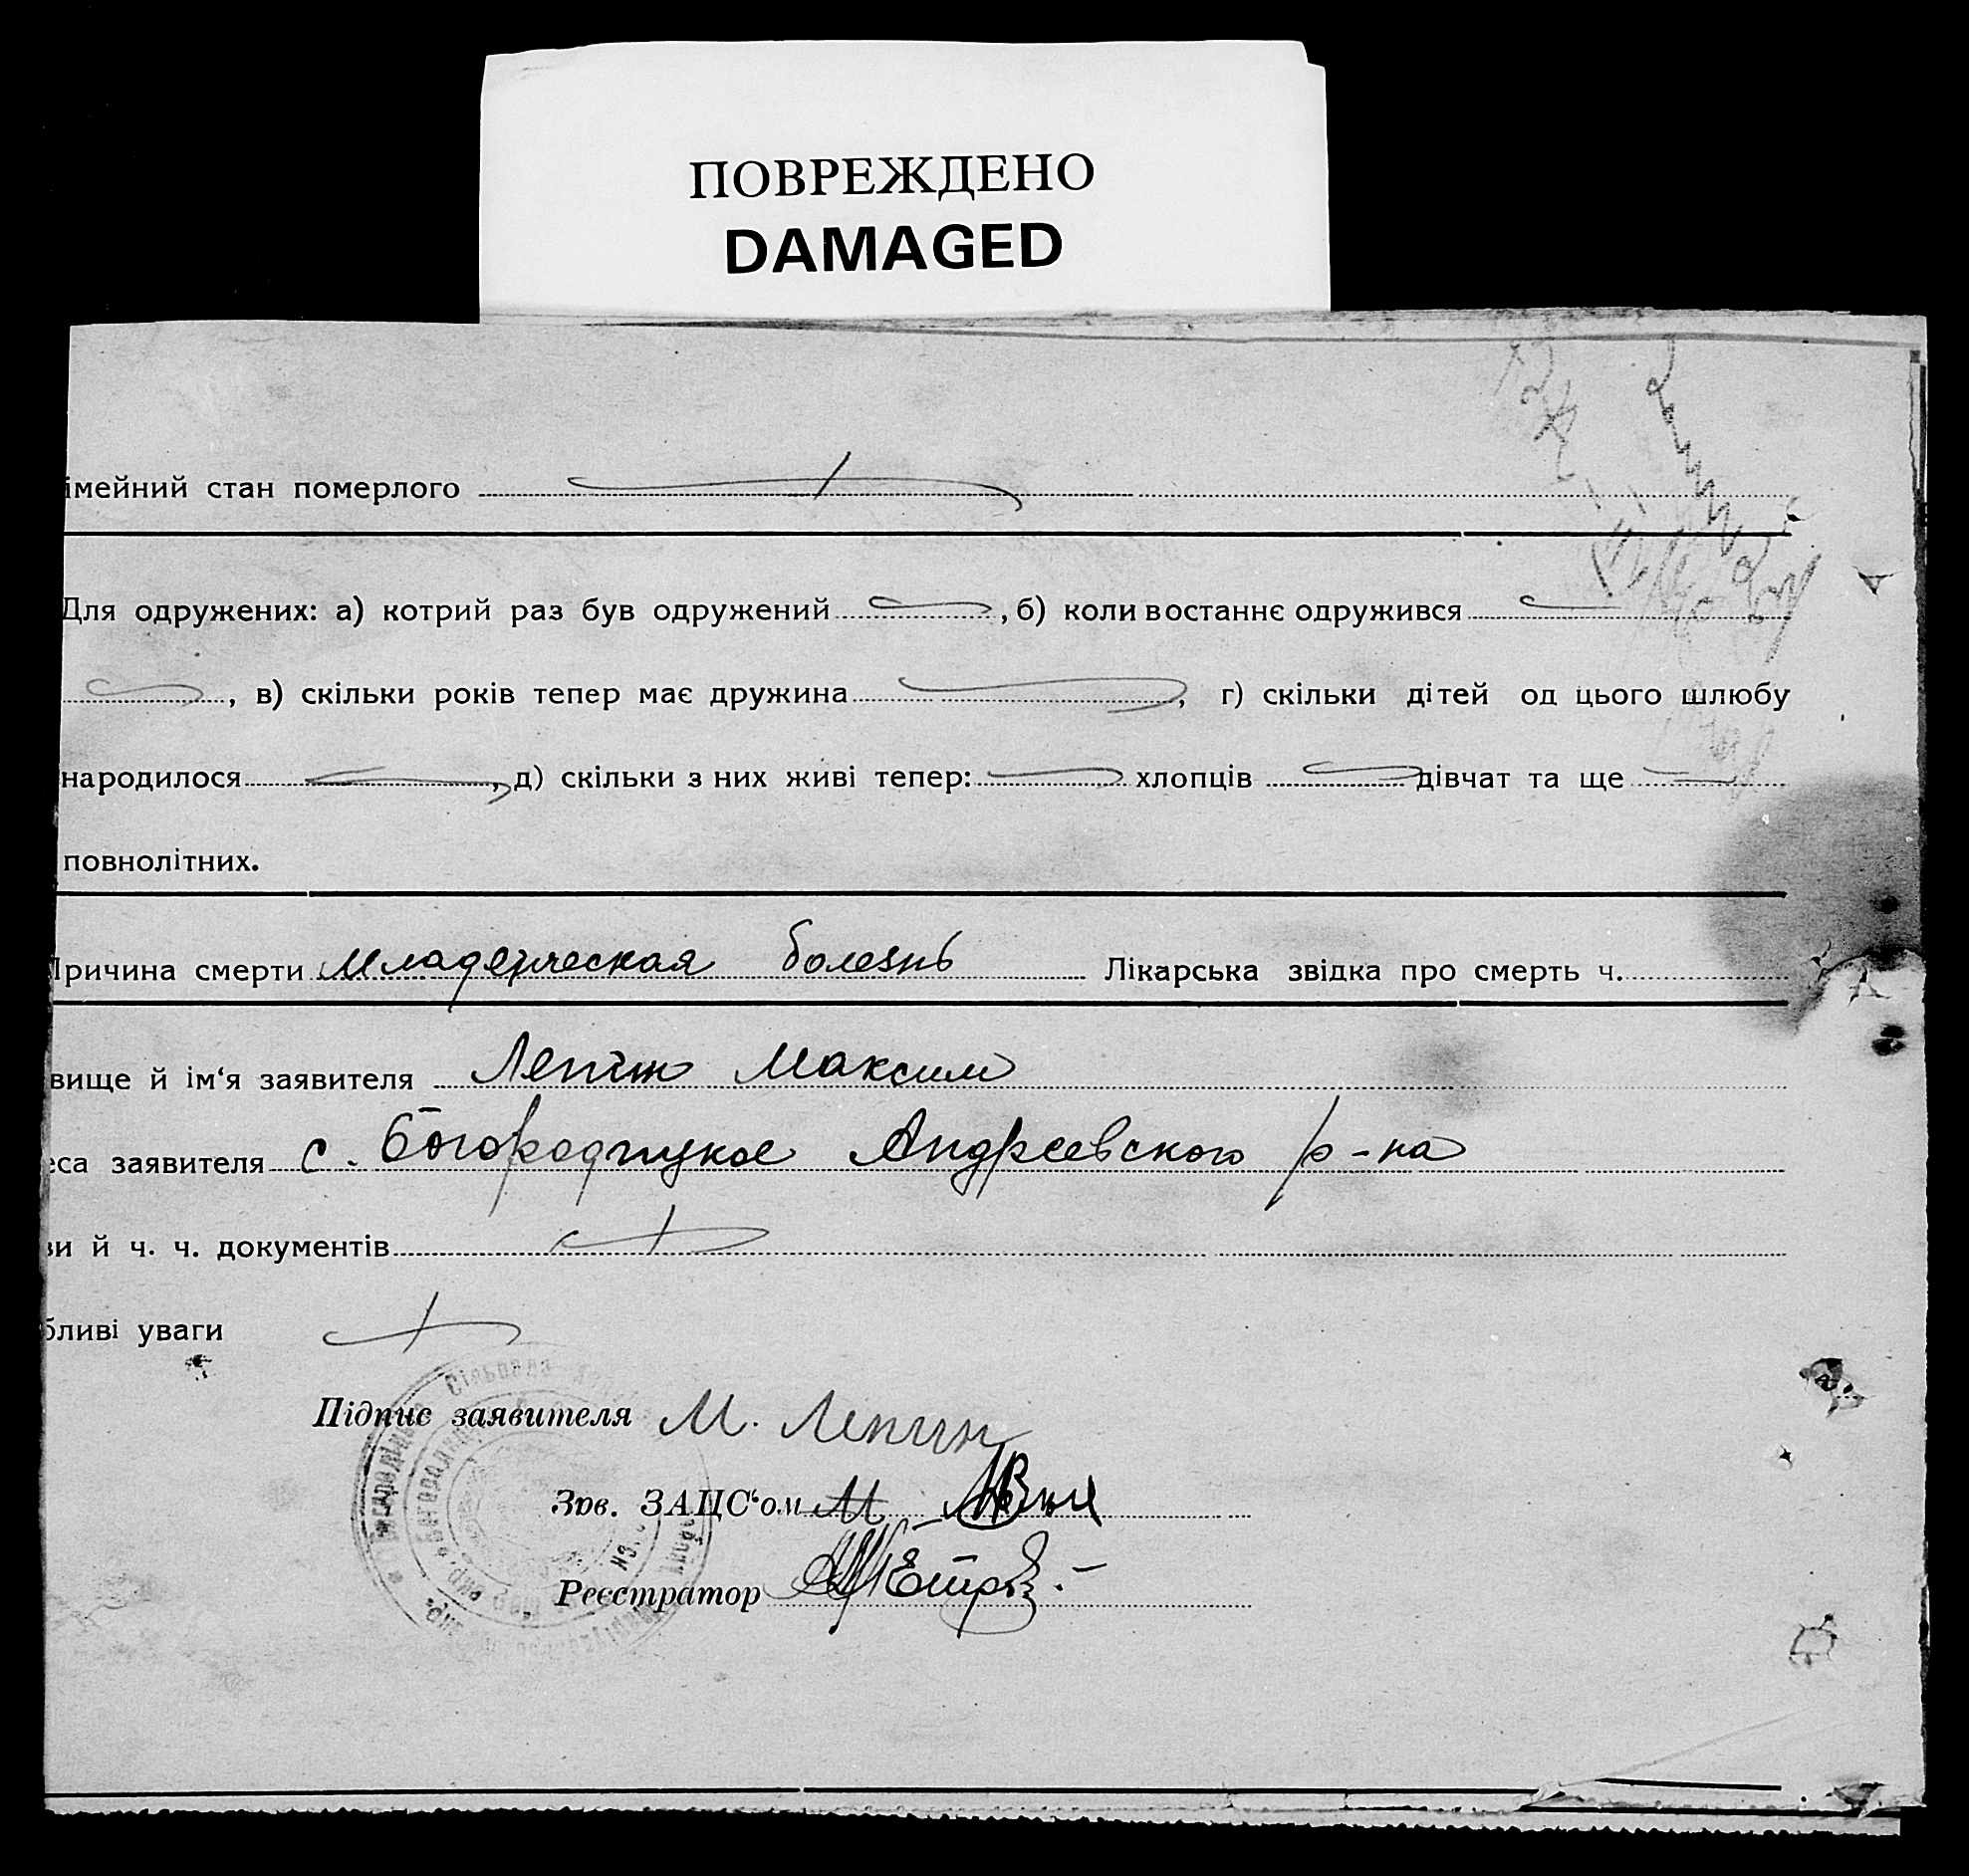 ПОВРЕЖДЕНО
DAMAGED
імейний стан померлого
Для одружених: а) котрий раз був одружений, б) коли востаннє одружився
, в) скільки років тепер має дружина, г) скільки дітей од цього шлюбу
народилося, д) скільки з них живі тепер: хлопців дівчат та ще
повнолітних.
Причина смерти младенческая болезнь Лікарська звідка про смерть ч.
вище й ім‘я заявителя Лепин Максим
еса заявителя с. Богородицкое Андреевского р-на
ви й ч. ч. документів
бливі уваги
Підпис заявителя М. Лепин
Зав. ЗАЦС‘ом
Реєстратор
Сільрада